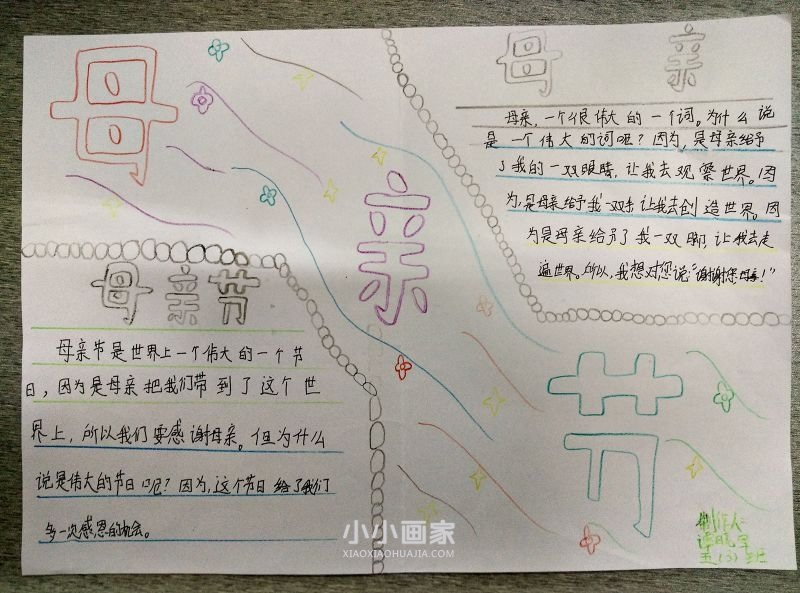 母
亲
节
母 亲
母亲，一个很伟大的一个词。为什么说
是一个伟大的词呢？因为，是母亲给予
了我的一双眼睛，让我去观察世界。因
为，是母亲给予我一双手让我去创造世界。因
为是母亲给予了我一双脚，让我去走
遍世界。所以，我想对您说：“谢谢您母亲！”
母亲节
母亲节是世界上一个伟大的一个节
日，因为是母亲把我们带到了这个世
界上，所以我们要感谢母亲。但为什么
说是伟大的节日呢？因为，这个节日给了我们
多一次感恩的机会。
制作人：
五（3）班
小小画家
XIAOXIAOHUAJIA.COM